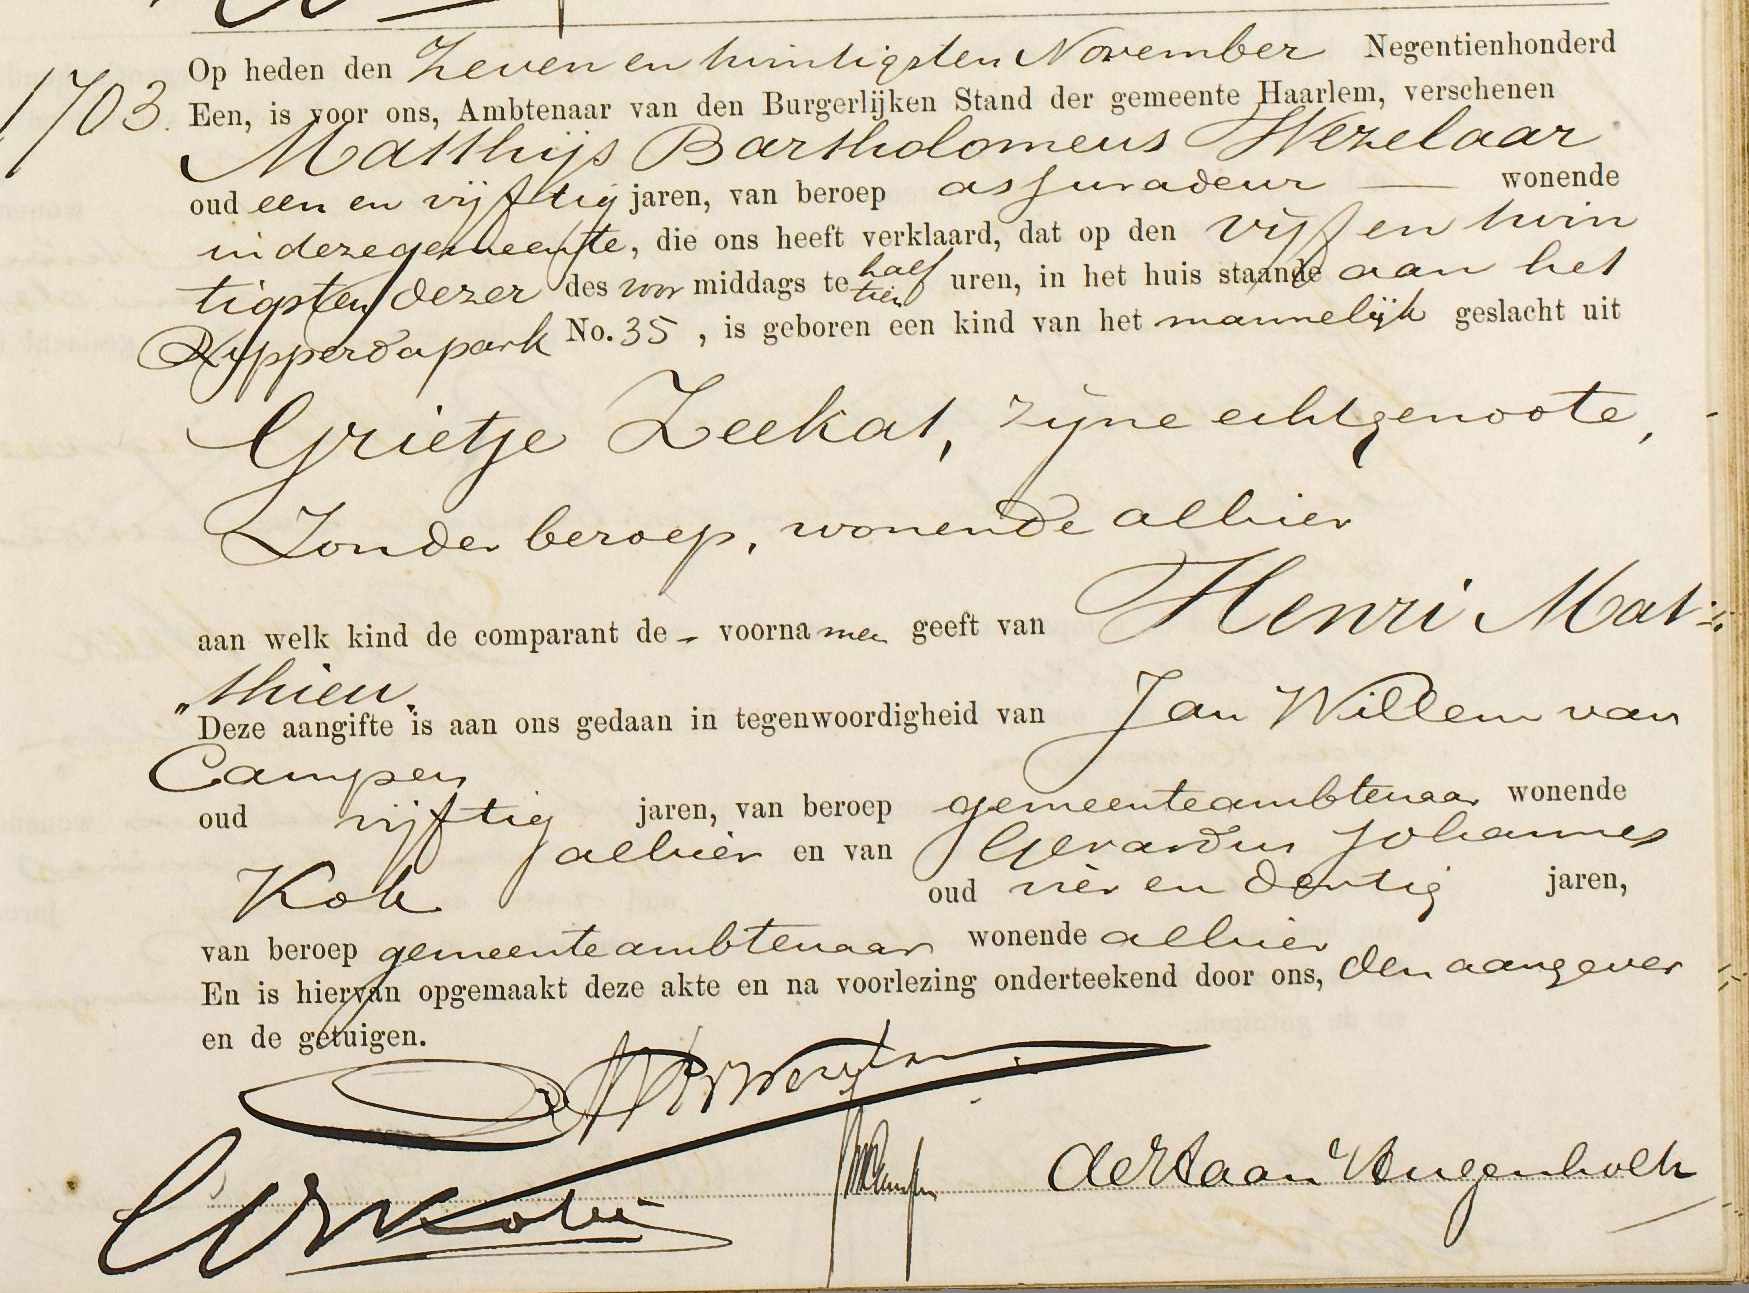 1703.
Op heden den Zeven en twintigsten November Negentienhonderd
Een, is voor ons, Ambtenaar van den Burgerlijken Stand der gemeente Haarlem, verschenen
Matthijs Bartholomeus Wezelaar
oud een en vijftig jaren, van beroep assuradeur — wonende
in deze gemeente, die ons heeft verklaard, dat op den vijf en twin
tigsten dezer des voor middags te half tien uren, in het huis staande aan het
Ripperdapark No. 35, is geboren een kind van het mannelijk geslacht uit
Grietje Zeekat, zijne echtgenoote,
Zonder beroep, wonende alhier
aan welk kind de comparant de - voornamen geeft van Henri Mat=
„thieu.
Deze aangifte is aan ons gedaan in tegenwoordigheid van Jan Willem van
Campen
oud vijftig jaren, van beroep gemeenteambtenaar wonende
alhier en van Gerardus Johannes
Kok oud vier en dertig jaren,
van beroep gemeenteambtenaar wonende alhier
En is hiervan opgemaakt deze akte en na voorlezing onderteekend door ons, den aangever
en de getuigen.
de Haan Hugenholtz